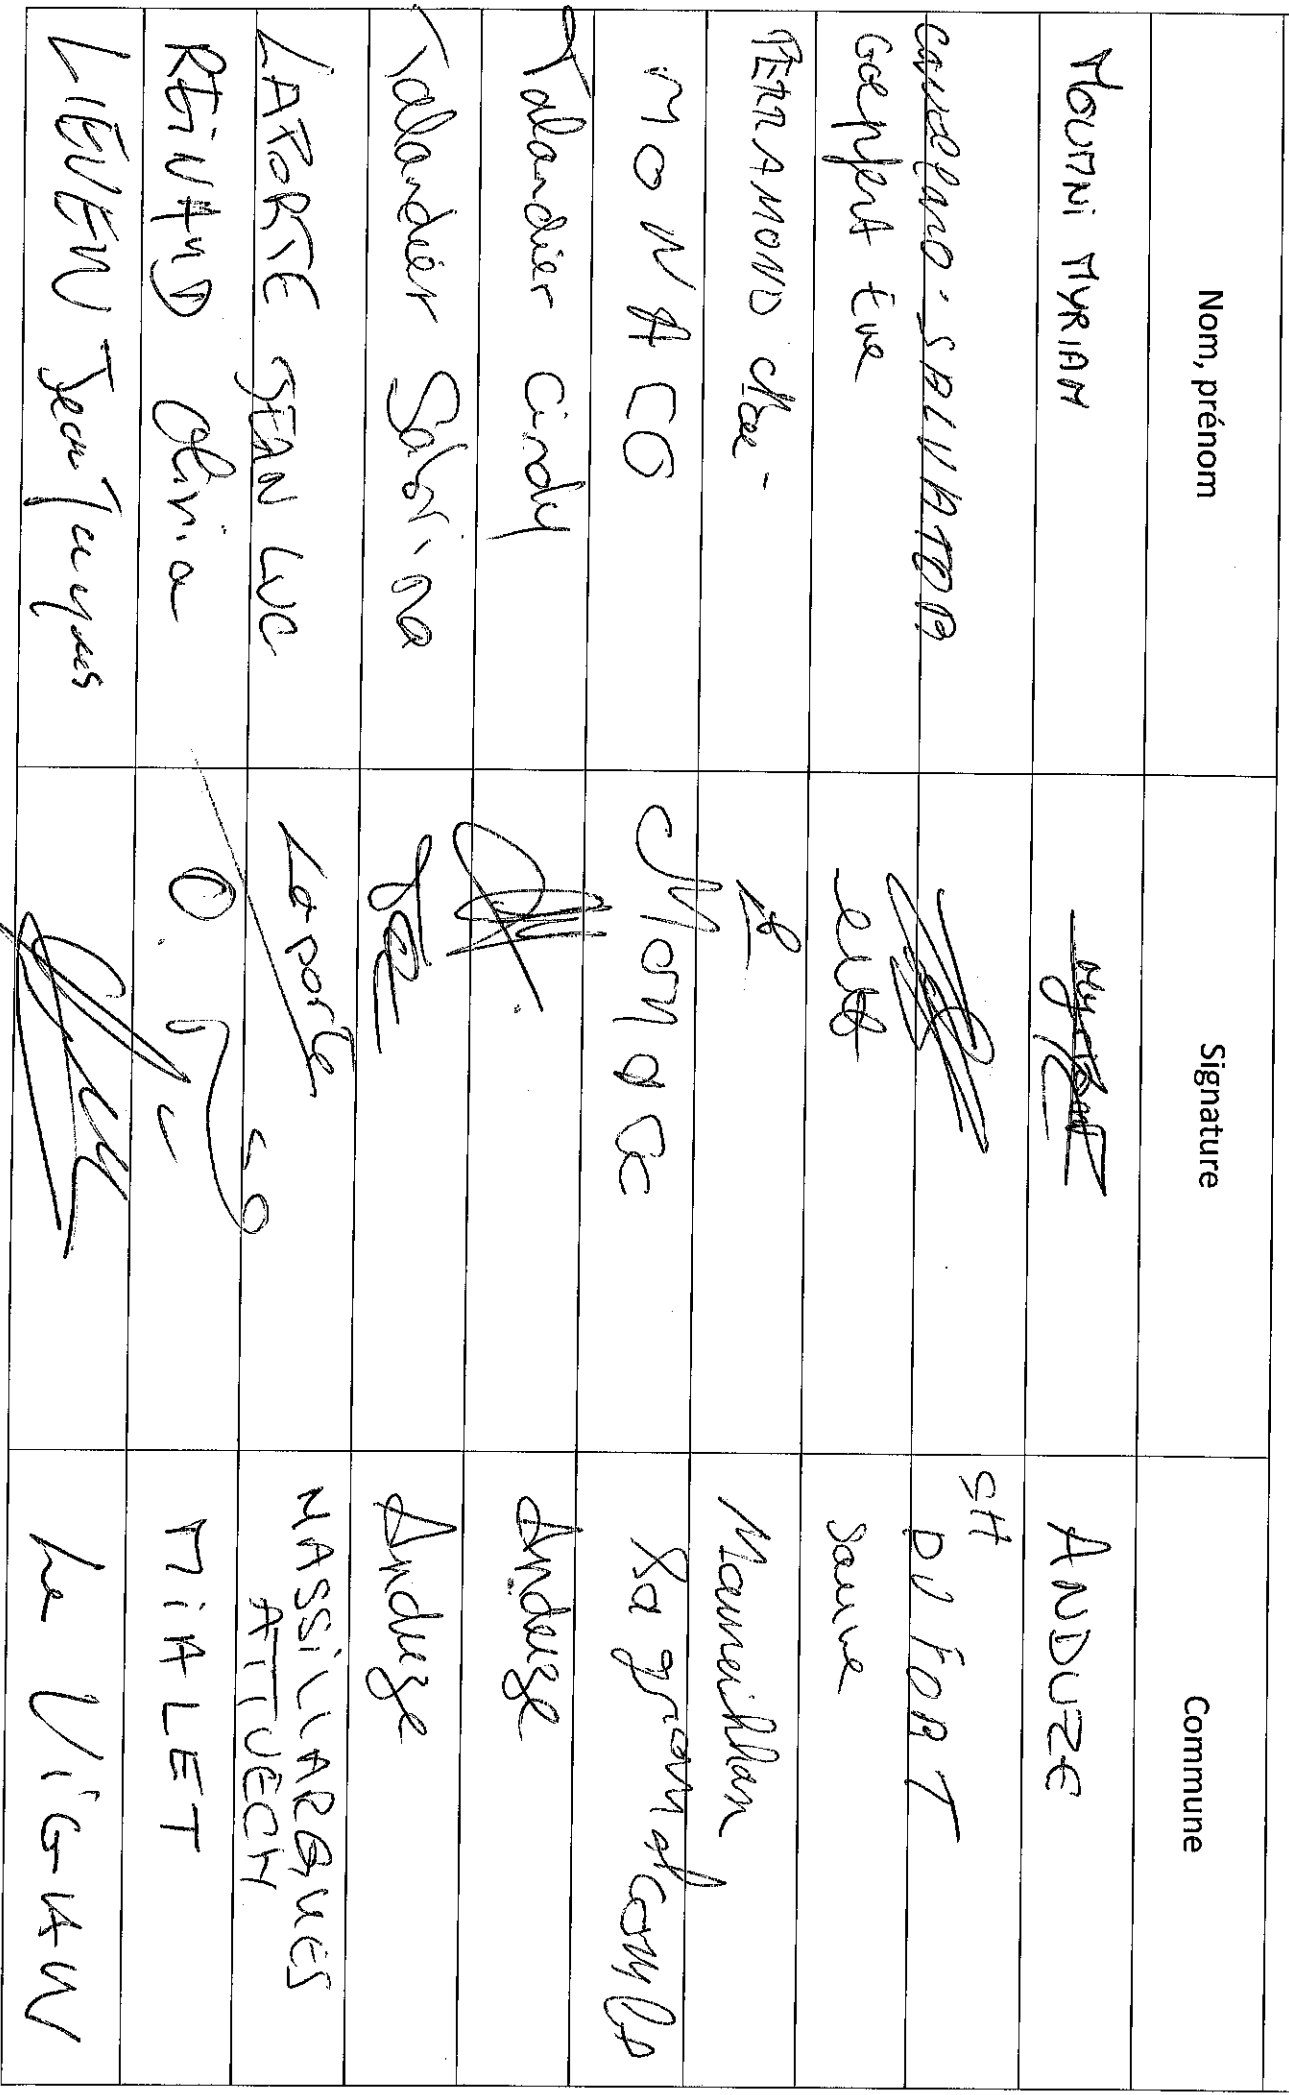 Nom, prénom Signature Commune
MOUMNI MYRIAM ANDUZE
SALVATOR St H DU FORT
Goepfert Eve Sauve
PERRAMOND Maureilhan
MONACO Monaco
Talandier Cindy Anduze
Talandier Sabrina Anduze
LAPORTE JEAN LUC Laporte MASSILLARGUES
ATTUECH
REINAUD Olivia MIALET
LIEVEN Jean Jacques Le VIGAN